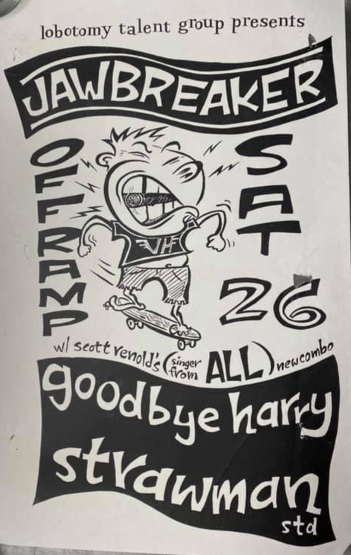 lobotomy talent group presents
JAWBREAKER
OFFRAMP
SAT
26
VH
w/ scott renold's (singer from ALL) new combo
goodbye harry
strawman
std